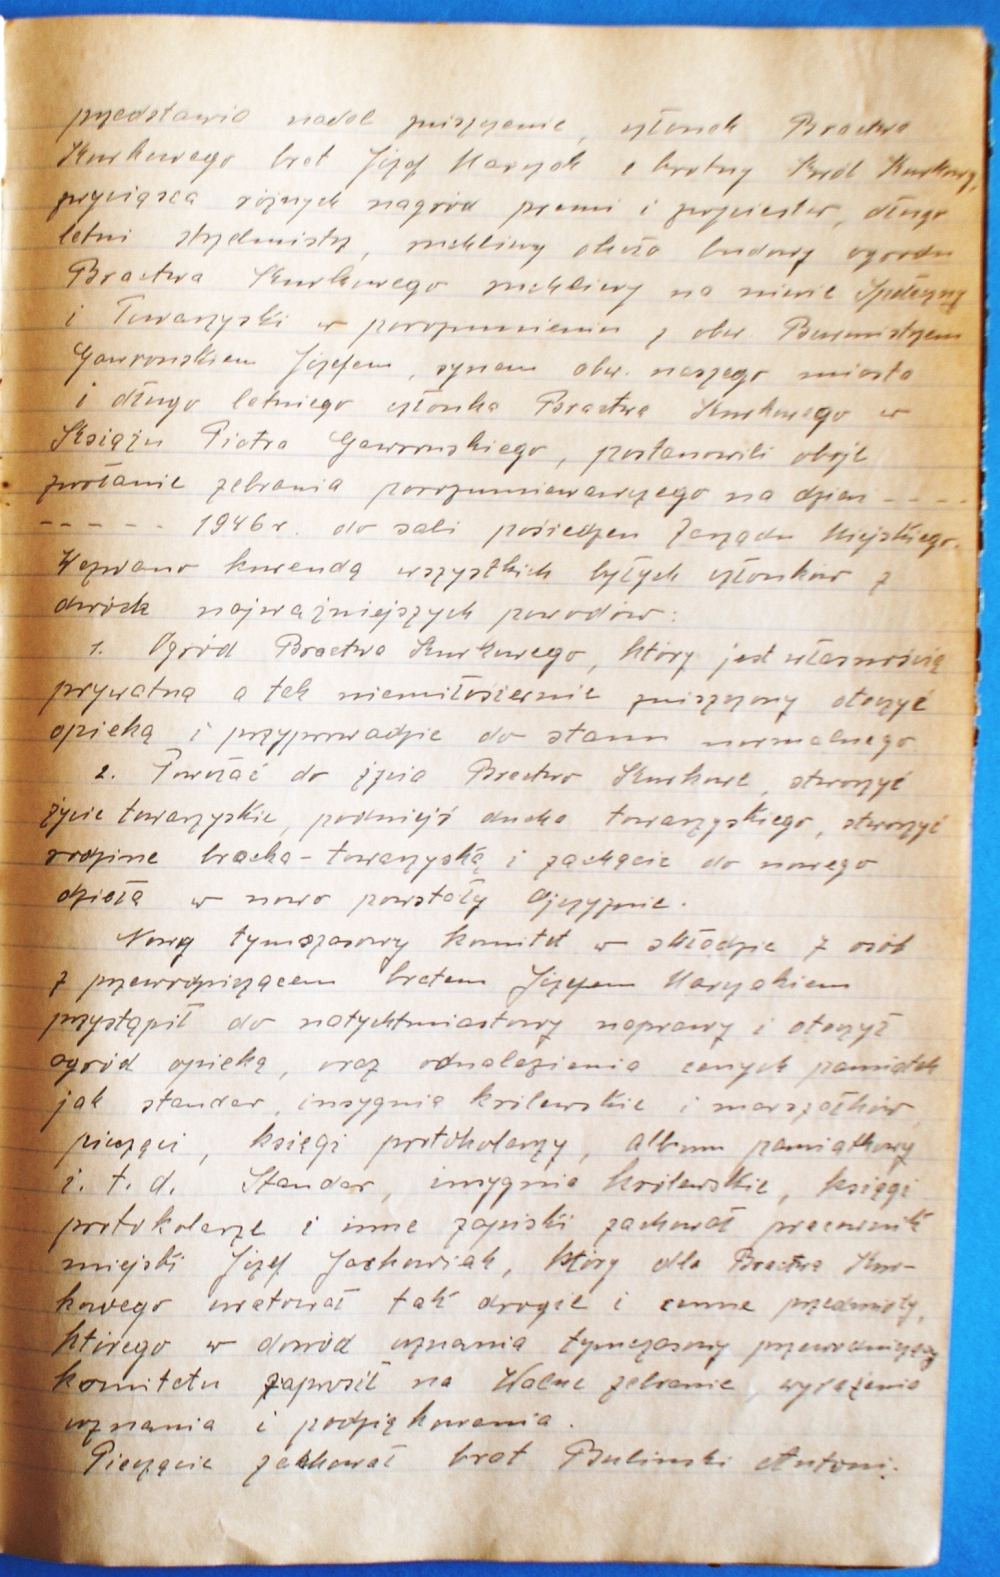 przedstawia nadal zniszczenie, członek Bractwa
Kurkowego brat Józef Marczak i krotny Król Kurkowy,
zwycięsca różnych nagród premi i zwycięstw, długo
letni strzelmistrz, ruchliwy około budowy ogrodu
Bractwa Kurkowego ruchliwy na niwie Społeczny
i Towarzyski w porozumieniu z obw. Burmistrzem
Gawronskiem Józefem, synem obw. naszego miasta
i długo letniego członka Bractwa Kurkowego w
Książu Piotra Gawronskiego, postanowili obaje
zwołanie zebrania porozumiewawczego na dzien - - - -
- - - - - 1946 r. do sali posiedzen Zarządu Miejskiego.
Wezwano kurendą wszystkich byłych członków z
dwóch najważniejszych powodów:
1. Ogród Bractwa Kurkowego, który jest własnością
prywatną a tak niemiłosiernie zniszczony otoczyć
opieką i przyprowadzic do stanu normalnego
2. Powołać do życia Bractwo Kurkowe, stworzyć
życie towarzyskie, podnieść ducha towarzyskiego, stworzyć
rodzine bracką-towarzyską i zachęcic do nowego
dzieła w nowo powstały Ojczyznie.
Nowy tymczasowy komitet w składzie 7 osób
z przewodniczącem bratem Józefem Marczakiem
przystąpił do natychtmiastowy naprawy i otoczył
ogród opieką, oraz odnalezienia cenych pamiątek
jak standar, insygnia królewskie i marszałków,
pieczęci, księgi protokolarzy, album pamiątkowy
i. t. d. Standar, insygnia królewskie, księgi
protokolarze i inne zapiski zachował pracownik
miejski Józef Jackowiak, który dla Bractwa Kur-
kowego uratował tak drogie i cenne przedmioty,
którego w dowód uznania tymczasowy przewodniczący
komitetu zaprosił na Walne zebranie, wyrażenia
uznania i podziękowania.
Pieczęcie zachował brat Bulinski Antoni.